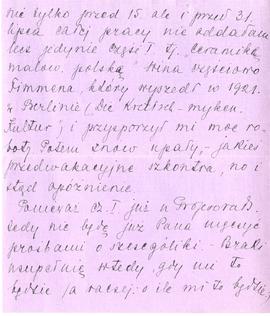 nie tylko przed 15 ale i przed 31.
lipca całej pracy nie oddałam
lecz jedynie część I tj. "ceramikę
malow. polską". Wina częściowo
Fimmena, który wyszedł w 1921.
w Berlinie (Die Kretisch-myken.
Kultur), i przysporzył mi moc ro-
boty. Potem znów upały, jakieś
przedwakacyjne szkontra, no i
stąd opóźnienie.
Ponieważ cz. I już u
będę już Pana męczyć
prośbami o szczególiki. Braki
uzupełnię wtedy, gdy mi to
będzie (a raczej: o ile mi to będzie